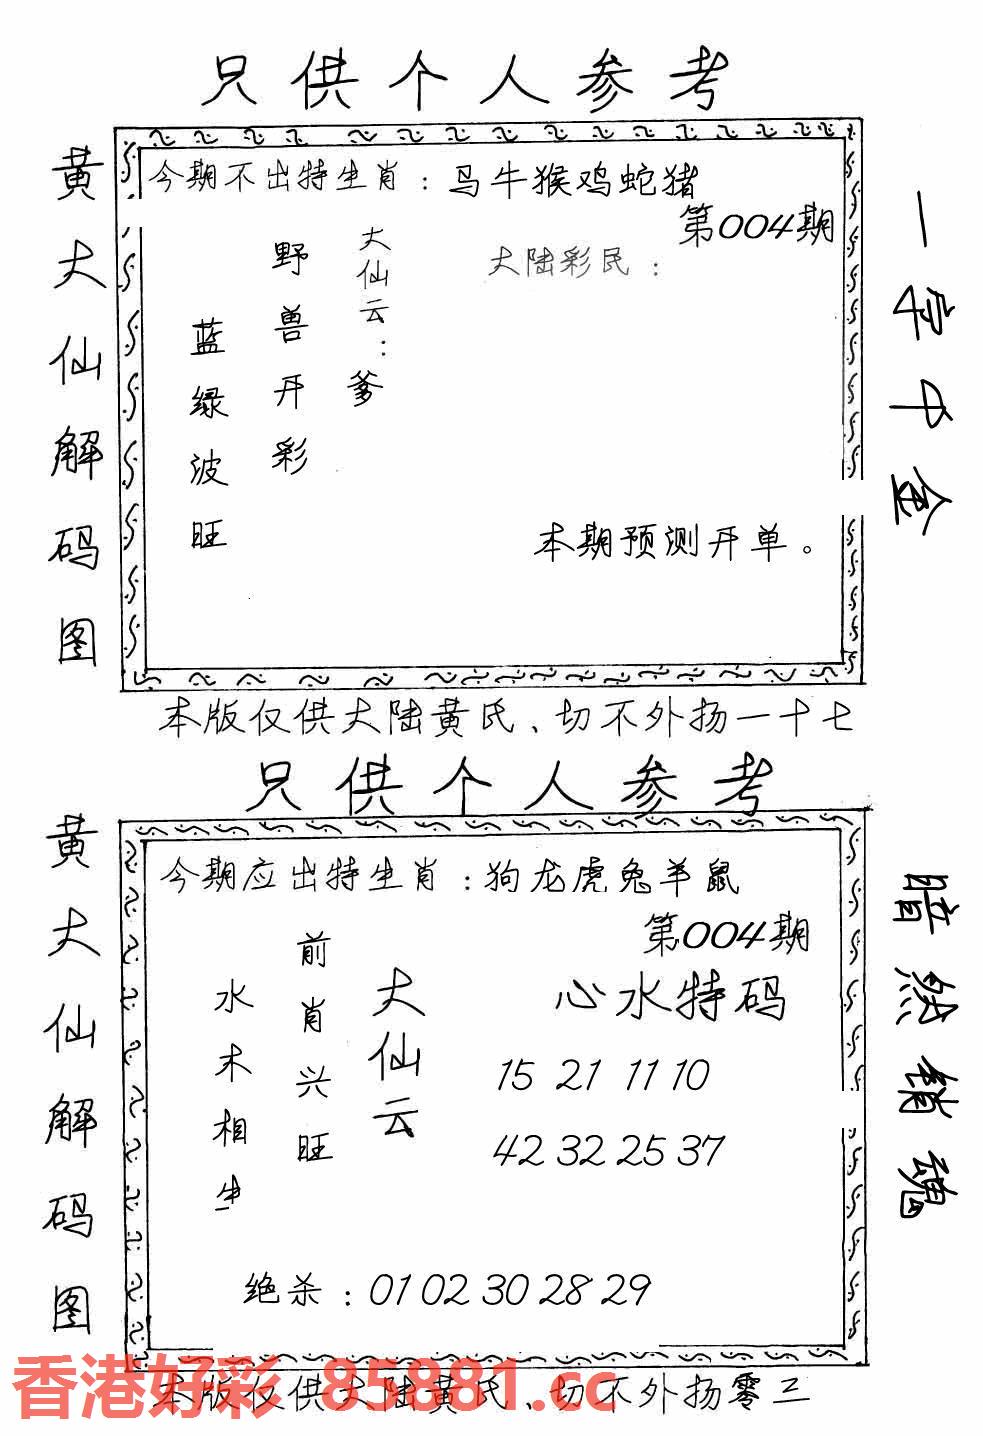 只供个人参考
黄大仙解码图
今期不出特生肖：马牛猴鸡蛇猪
第004期
大陆彩民：
大仙云：爹
野兽开彩
蓝绿波旺
本期预测开单。
一字中金
本版仅供大陆黄氏、切不外扬一十七
只供个人参考
黄大仙解码图
今期应出特生肖：狗龙虎兔羊鼠
第004期
心水特码
15 21 11 10
42 32 25 37
大仙云
前肖兴旺
水木相生
绝杀：01 02 30 28 29
暗然销魂
香港好彩 85881.cc
本版仅供大陆黄氏、切不外扬零三